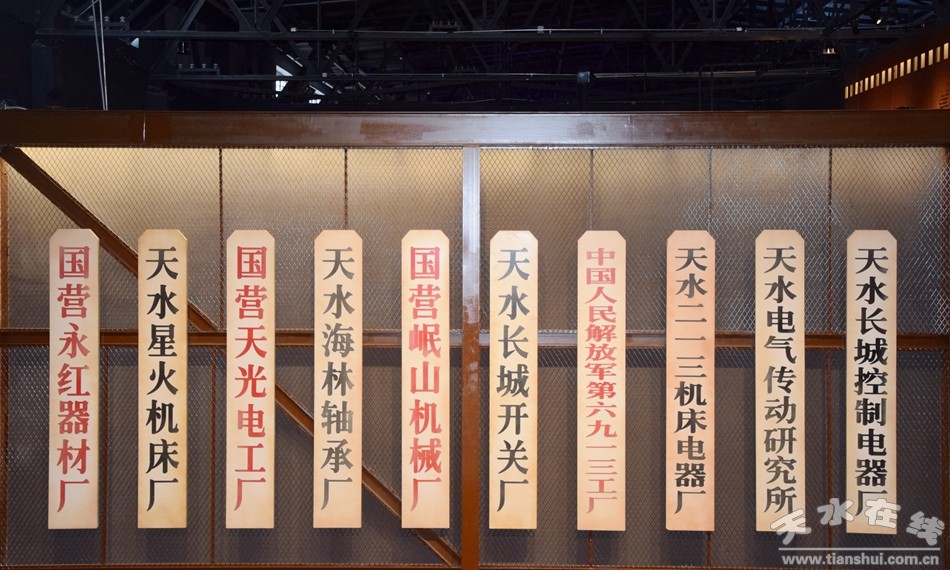 国营永红器材厂
天水星火机床厂
国营天光电工厂
天水海林轴承厂
国营岷山机械厂
天水长城开关厂
中国人民解放军第六九一三工厂
天水二一三机床电器厂
天水电气传动研究所
天水长城控制电器厂
天水在线
www.tianshui.com.cn